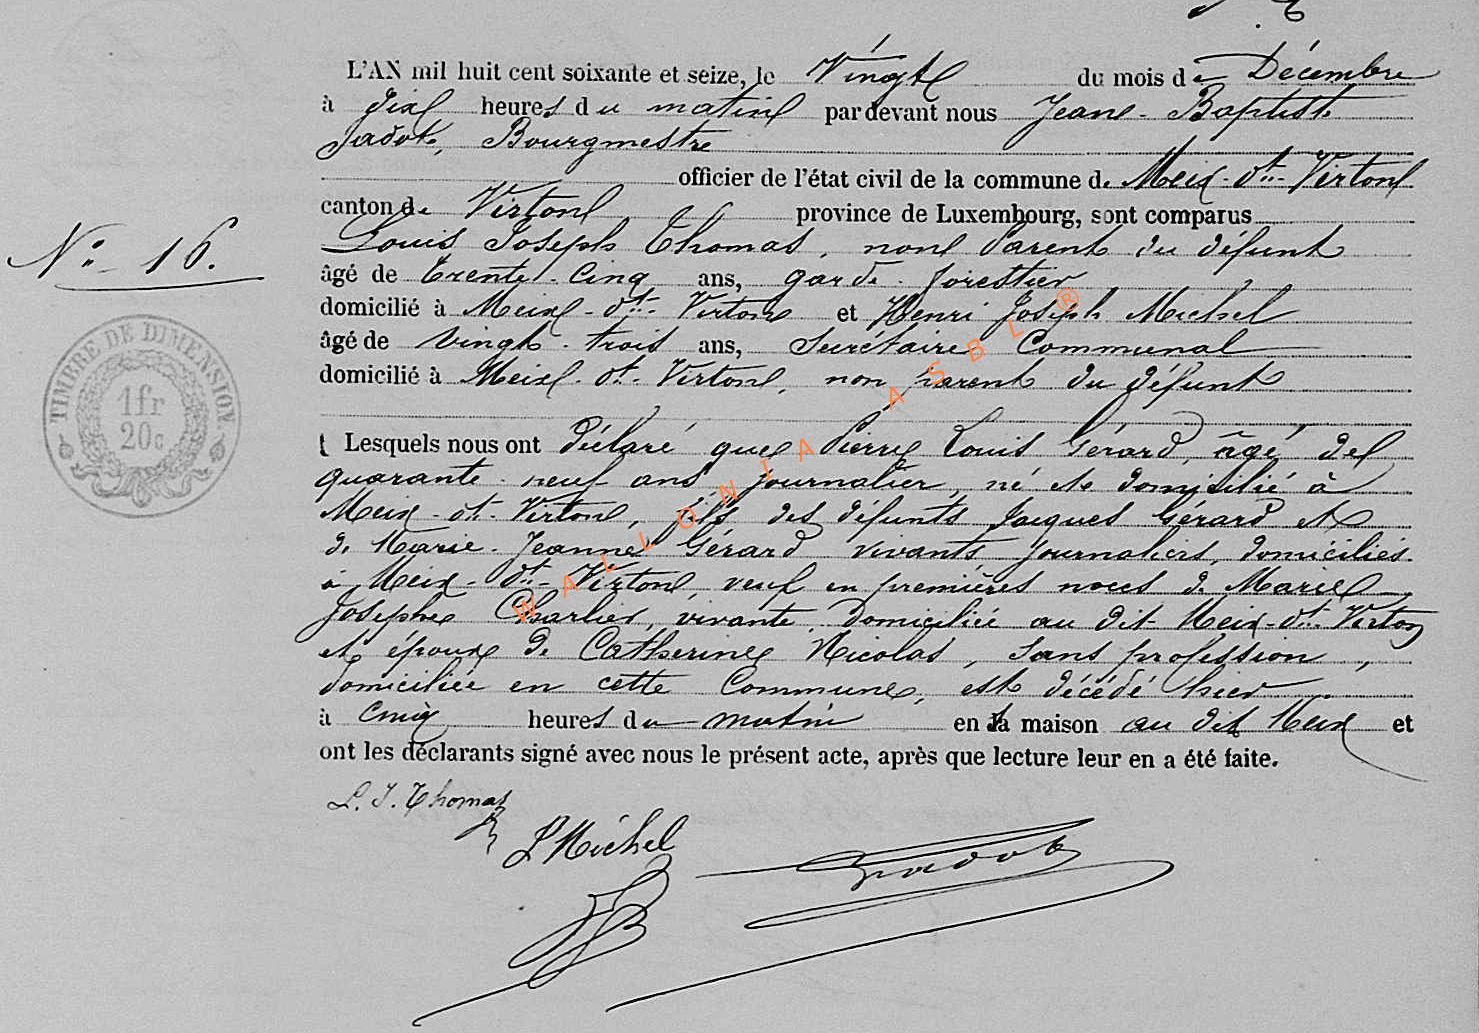 L'AN mil huit cent soixante et seize, le Vingt du mois de Décembre
à dix heures du matin par devant nous Jean-Baptiste
Jadot, Bourgmestre
officier de l'état civil de la commune de Meix-dt-Virton
canton de Virton province de Luxembourg, sont comparus
Louis Joseph Thomas, non Parent du défunt
N° 16.
âgé de trente-cinq ans, garde forestier
domicilié à Meix-dt-Virton et Henri Joseph Michel
âgé de vingt-trois ans, Secrétaire Communal
domicilié à Meix-dt-Virton, non parent du défunt
Lesquels nous ont déclaré que Pierre Louis Gérard, âgé de
quarante-neuf ans journalier, né et domicilié à
Meix-dt-Virton, fils des défunts Jacques Gérard et
de Marie-Jeanne Gérard vivants journaliers, domiciliés
à Meix-dt-Virton veuf en premières noces de Marie
Josephe Charlier, vivante, domiciliée au dit Meix-dt-Virton
et époux de Catherine Nicolas, sans profession,
domiciliée en cette Commune, est décédé hier
à cinq heures du matin en sa maison au dit Meix et
ont les déclarants signé avec nous le présent acte, après que lecture leur en a été faite.
L. J. Thomas
Michel
Jadot
TIMBRE DE DIMENSION
1fr
20c
WALLONIA ASBL ®